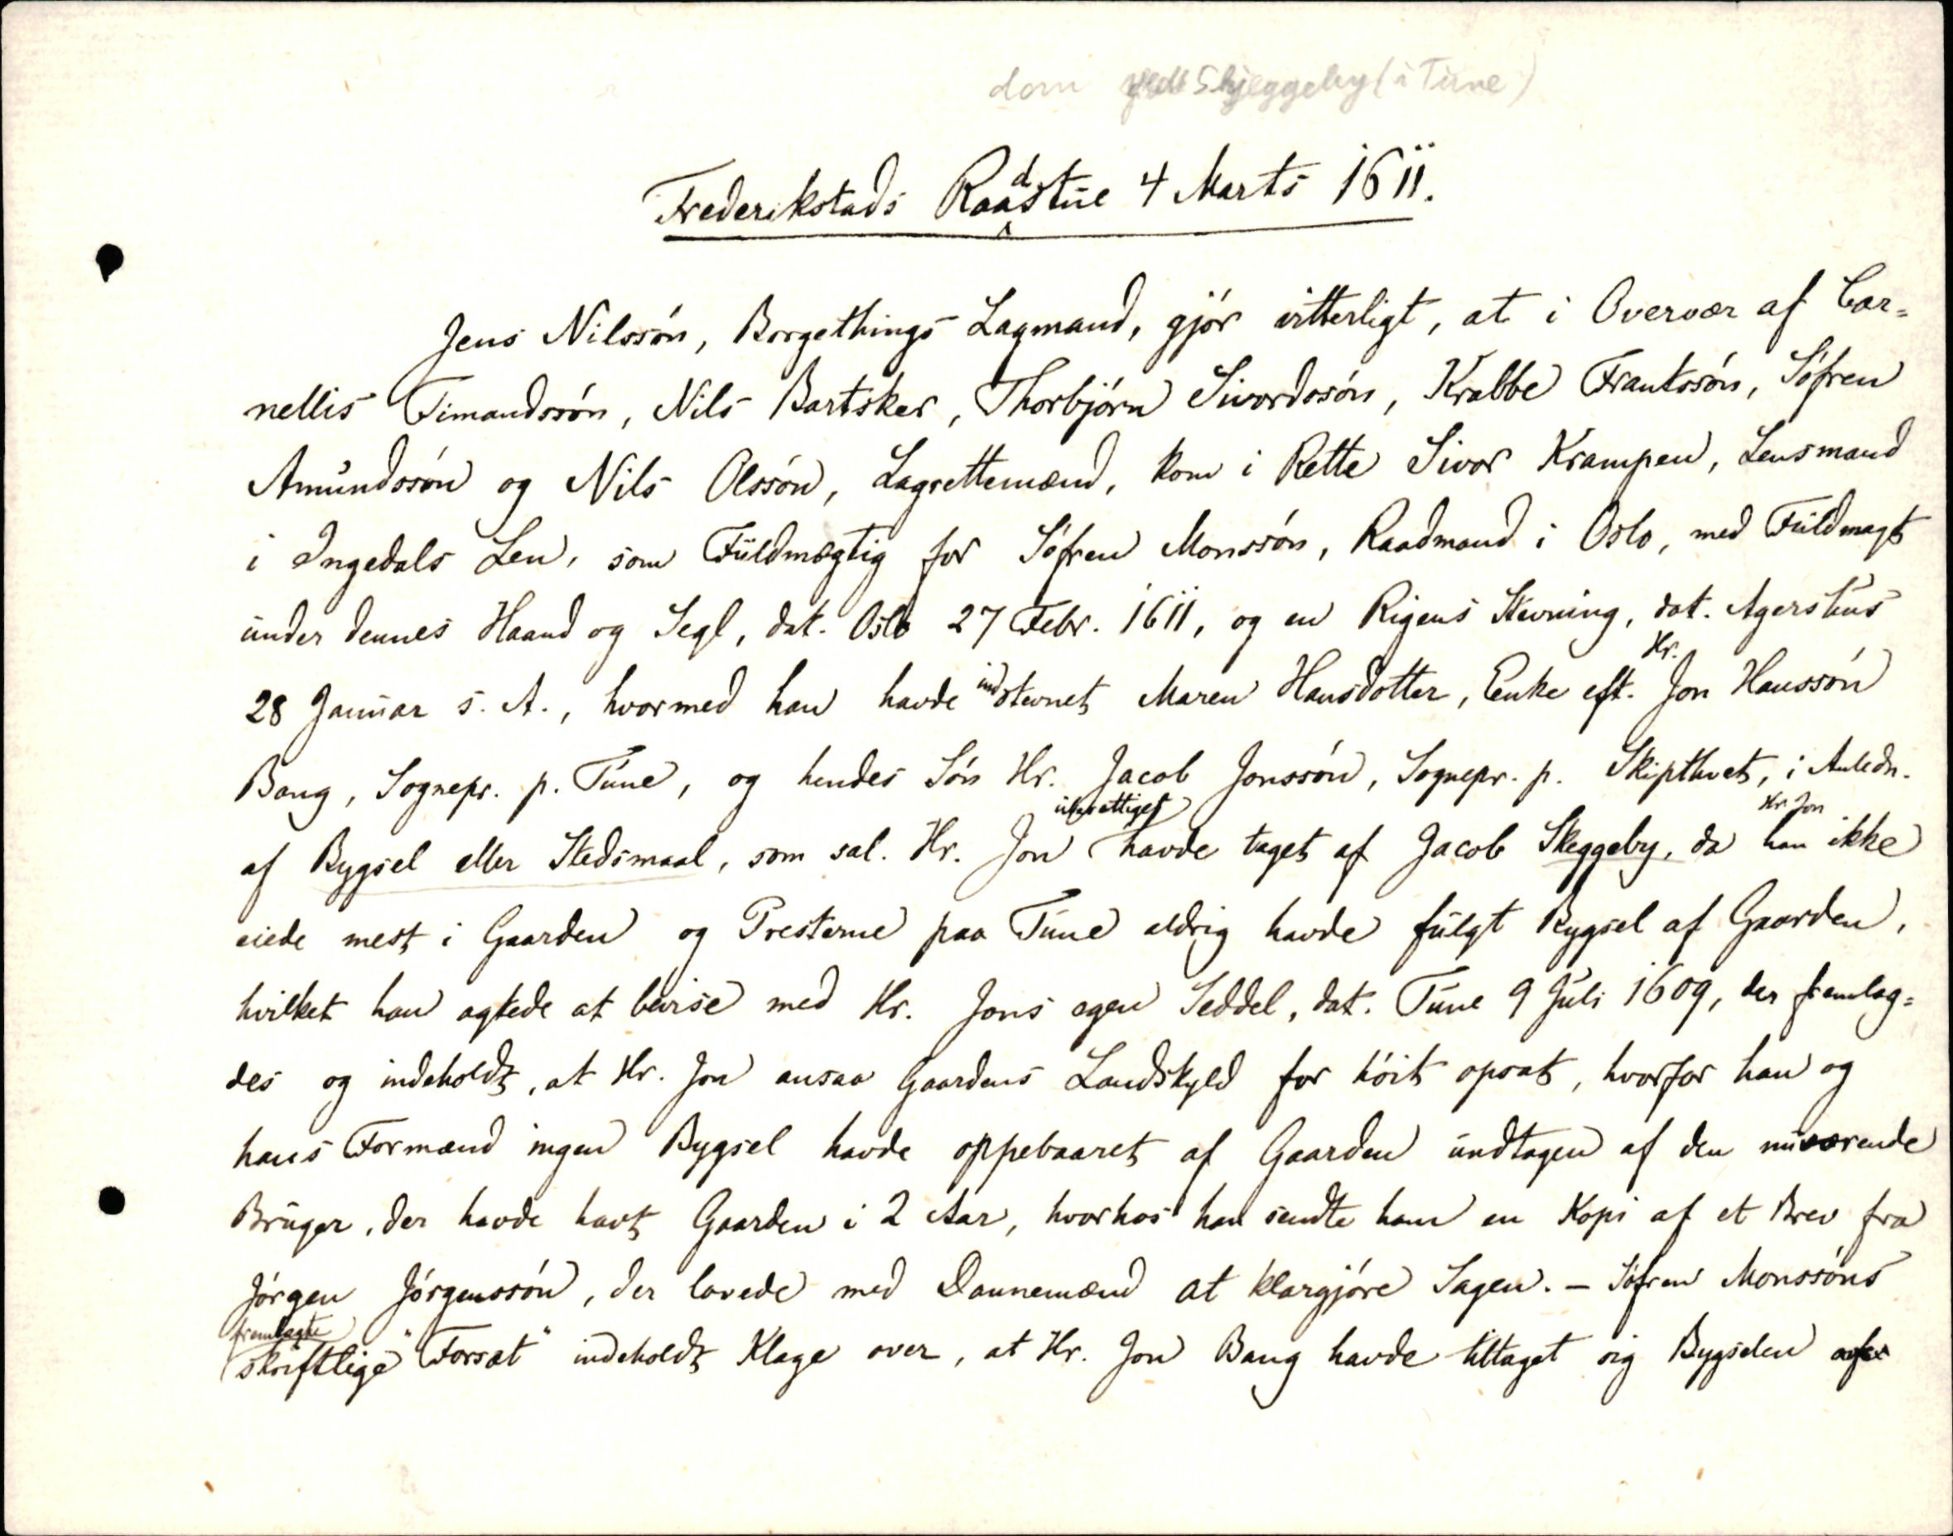 dom Skjeggeby (i Tune)
Frederikstads Raadstue 4 Marts 1611.
Jens Nilssøn, Borgethings Lagmand, gjør vitterligt, at i Overvær af Cor=
nellis Timandssøn, Nils Bartsker, Thorbjørn Sivordssøn, Krabbe Frantssøn, Søfren
Amundssøn og Nils Olssøn, Lagrettemænd, kom i Rette Sivor Krampen, Lensmand
i Ingedals Len, som Fuldmægtig for Søfren Monssøn, Raadmand i Oslo, med Fuldmagt
under dennes Haand og Segl, dat. Oslo 27 Febr. 1611, og en Rigens Stevning, dat. Agershus
28 Januar s. A., hvormed han havde indstevnet Maren Hansdotter, Enke eft. Hr. Jon Hanssøn
Bang, Sognepr. p. Tune, og hendes Søn Hr. Jacob Jonssøn, Sognepr. p. Skipthvet, i Anledn.
af Bygsel eller Stedsmaal, som sal. Hr. Jon uberettiget havde taget af Jacob Skeggeby, da han Hr. Jon ikke
eiede mest i Gaarden og Presterne paa Tune aldrig havde fulgt Bygsel af Gaarden,
hvilket han agtede at bevise med Hr. Jons egen Seddel, dat. Tune 9 Juli 1609, der fremlag=
des og indeholdt, at Hr. Jon ansaa Gaardens Landskyld for høit opsat, hvorfor han og
hans Formænd ingen Bygsel havde oppebaaret af Gaarden undtagen af den nuværende
Bruger, der havde havt Gaarden i 2 Aar, hvorhos han sendte ham en Kopi af et Brev fra
Jørgen Jørgenssøn, der lovede med Dannemænd at klargjøre Sagen. – Søfren Monssøns
fremlagte skriftlige "Forsæt" indeholdt Klage over, at Hr. Jon Bang havde tiltaget sig Bygselen af